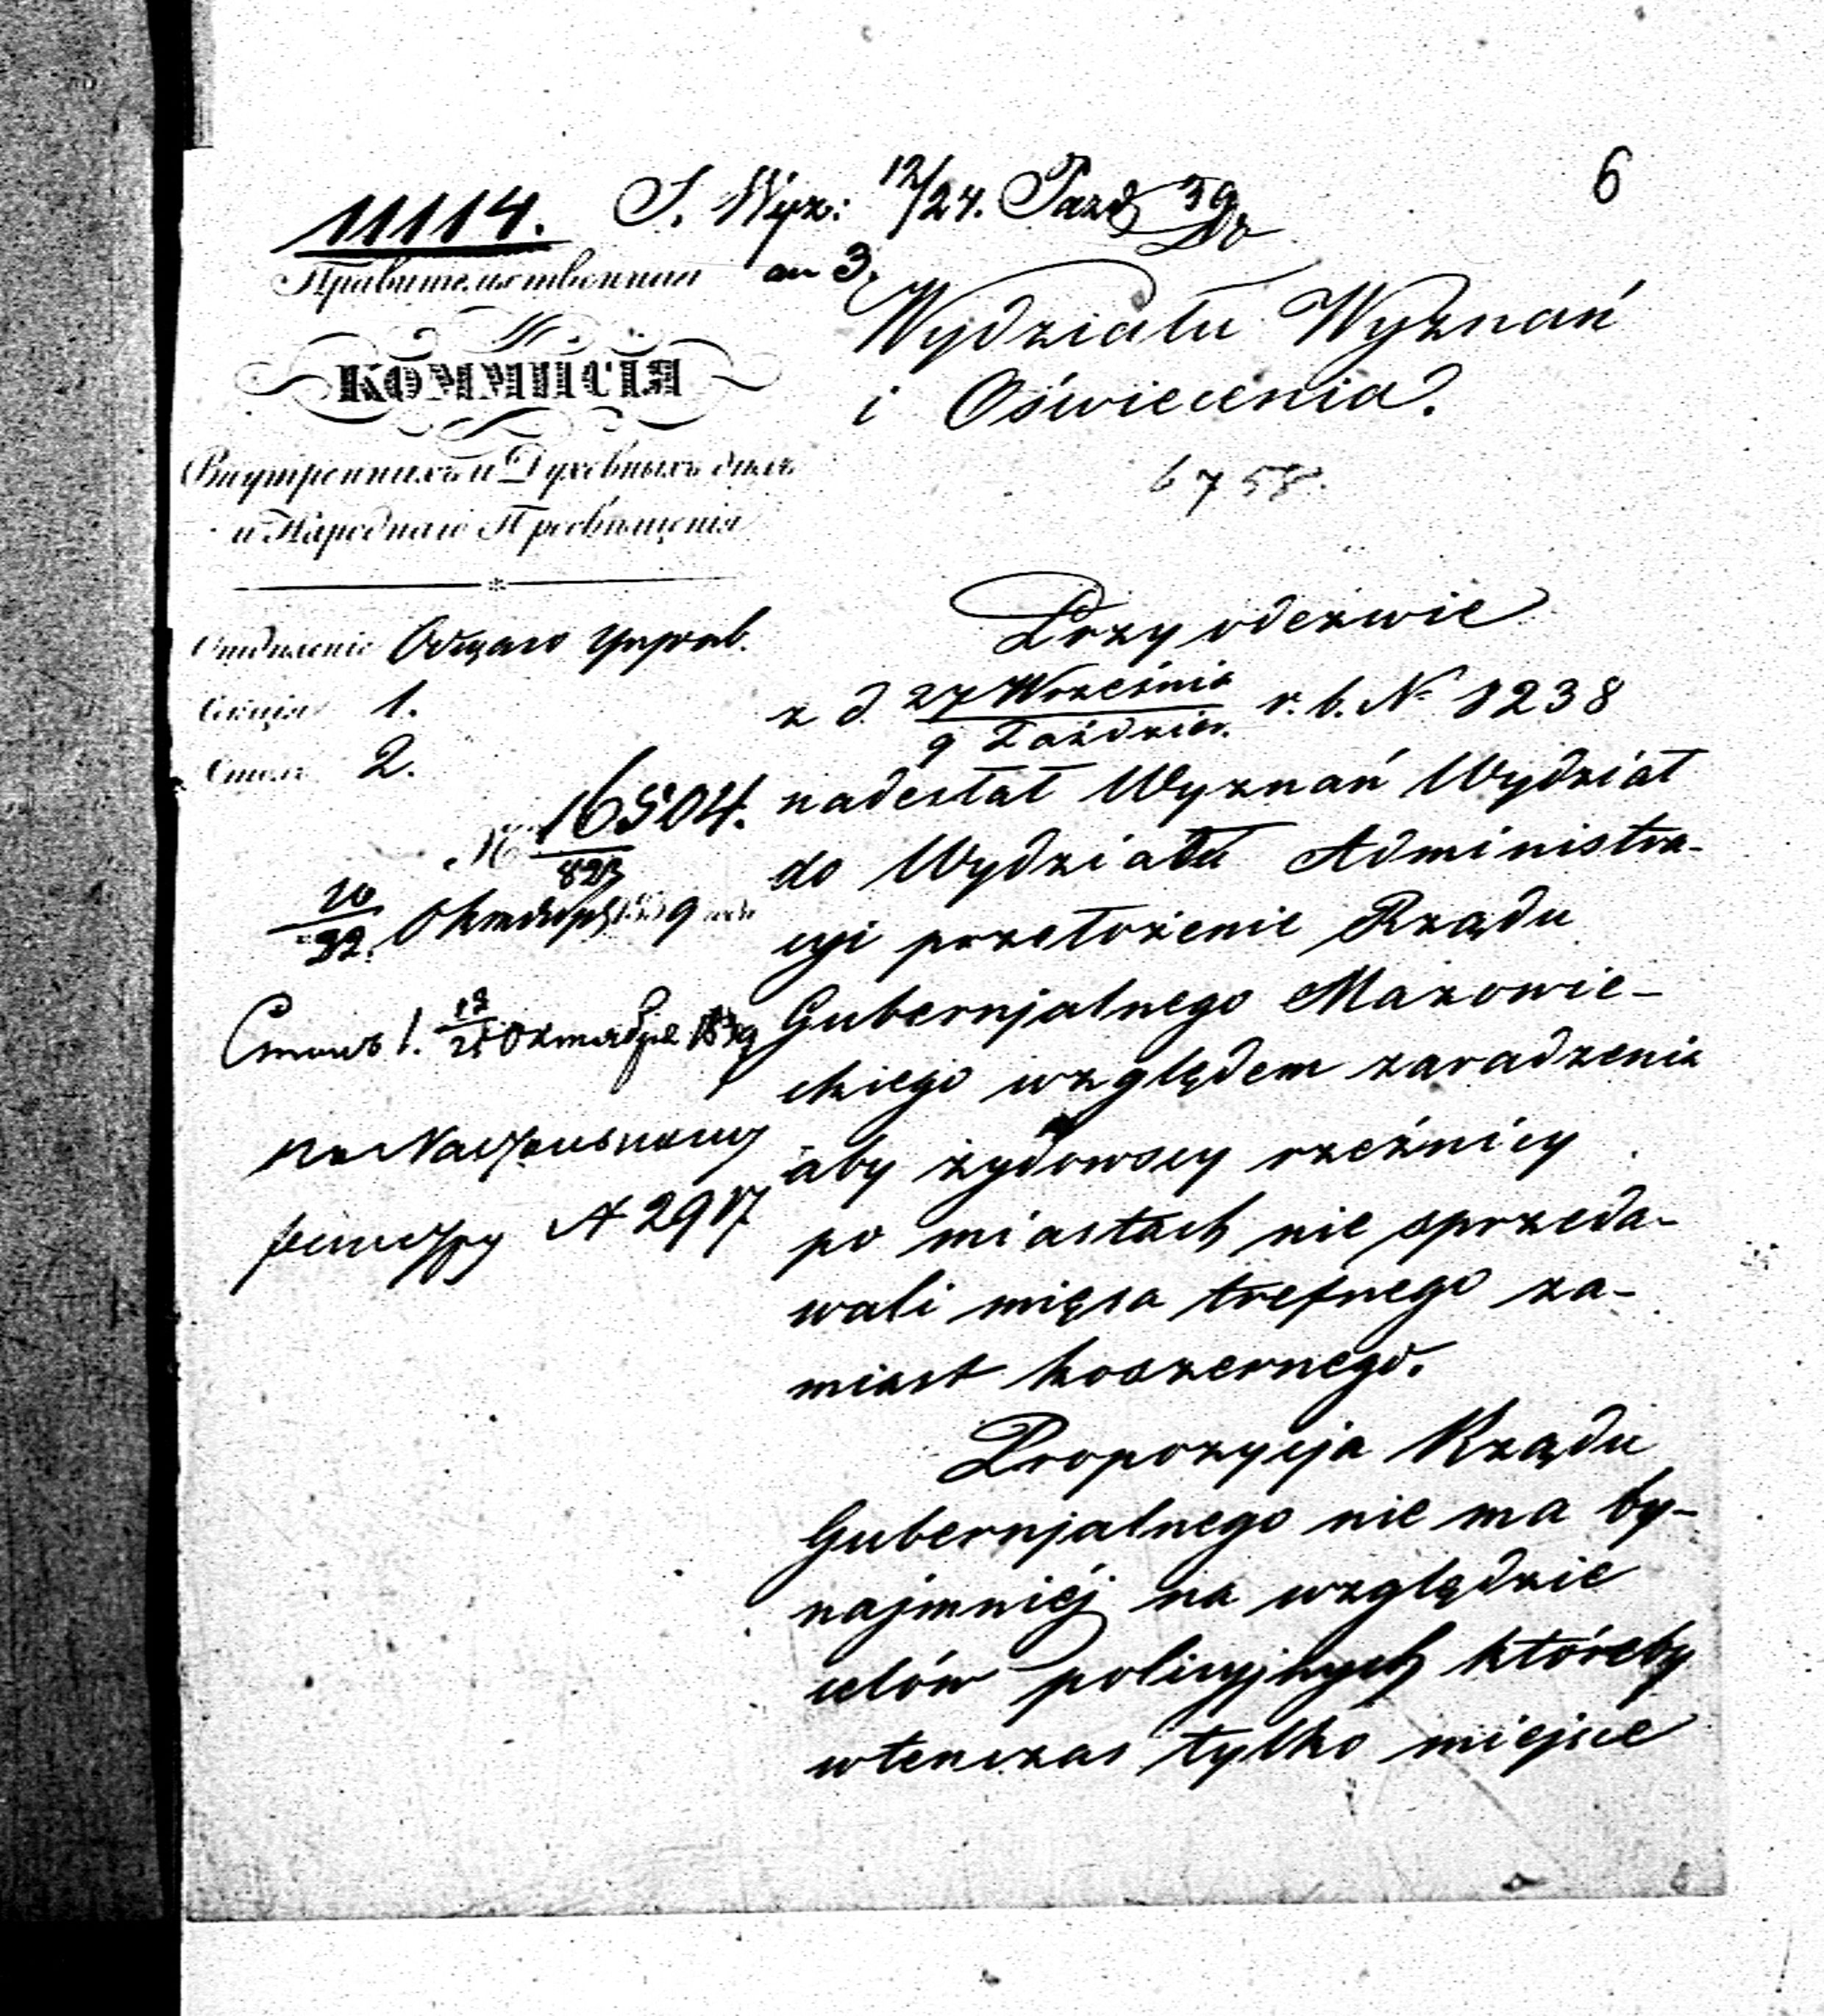 6
11114. S. Wyz: 12/24. Paźd 39
Правительственная
КОММИСІЯ
Внутреннихъ и Духовныхъ дѣлъ
и Народнаго Просвѣщенія
Отдѣленіе Общаго Управ.
Секція 1.
Столъ 2.
№ 16504.
823
20
Октября 1839 года
Столъ 1. Октября 1839
№ 2917
Do
Wydziału Wyznań
i Oświecenia.
6758.
Przy odezwie
z d. 27 Września / 9 Paździer. r. b. № 8238
nadesłał Wyznań Wydział
do Wydziału Administra-
cyi przełożenie Rządu
Gubernjalnego Mazowie-
ckiego względem zaradzenia
aby żydowscy rzeźnicy
po miastach nie sprzeda-
wali mięsa trefnego za-
miast koszernego.
Propozycja Rządu
Gubernjalnego nie ma by-
najmniéj na względzie
celów policyjnych któreby
wtenczas tylko miejsce